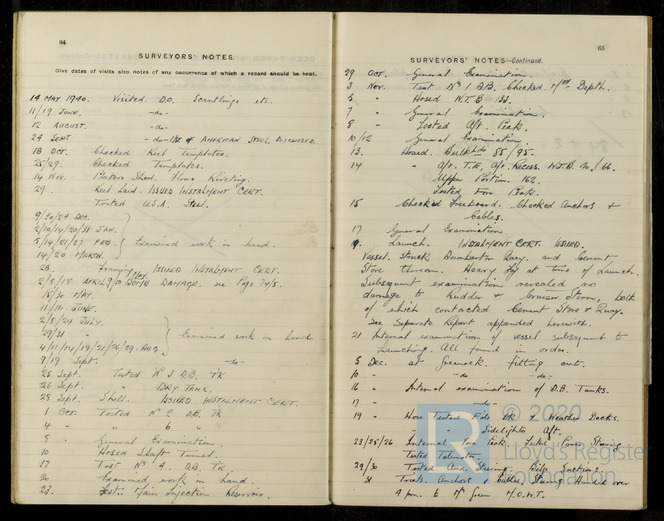 64
SURVEYORS' NOTES.
Give dates of visits also notes of any occurrence of which a record should be kept.
14 MAY 1940. Visited D.O. Scantlings etc.
11/19 JUNE. -do-
12 AUGUST. -do-
24 Sept -do- USE of AMERICAN STEEL DISCUSSED.
18 OCT. Checked Keel Templates.
25/29. Checked Templates.
14 Nov. Platers Shed. Flame Riveting.
29. Keel Laid. ISSUED INSTALMENT CERT.
Tested U.S.A. Steel.
9/20/24 DEC.
2/10/14/20/31 JAN.
5/14/21/27 FEB. Examined work in hand.
14/20 MARCH.
28. Framing ISSUED INSTALMENT CERT.
2/5/18 APRIL MAY DAMAGE. see Page 74/5.
15/30 MAY.
11/16 JUNE.
2/5/24 JULY.
29/31 " Examined work in hand
4/11/14/19/21/26/29 AUG
9/19 Sept. -do-
25 Sept Tested No 3 D.B. TK
26 Sept. " DRY TANK.
28 Sept. Shell. ISSUED INSTALMENT CERT.
1 Oct. Tested No 2 DB. TK
4 " " 6 "
8 . General Examination.
10 Hosed Shaft Tunnel.
17 Test No 4. D.B. TK
20 Examined work in hand.
23. Test. Main Injection Reservoir.
65
SURVEYORS' NOTES—Continued.
29 Oct. General Examination.
3 Nov. Test No 1 D.B. Checked Mld Depth.
5 " Hosed W.T.B 133.
7 " General Examination.
8 " Tested Aft. Peak.
10/12 General Examination.
13. Hosed Bulkhds 55/95.
14 " Aft. T.K, Aft. Recess. W.T.B. No. /66.
Upper Portion 162.
Tested Fore Peak.
15 Checked Freeboard. Checked Anchors &
Cables.
17 General Examination
Launch. INSTALMENT CERT. ISSUED.
Vessel Struck Dumbarton Quay. and Cement
Store thereon. Heavy fog at time of Launch.
Subsequent examination revealed no
damage to Rudder & Cruiser Stern, both
of which contacted Cement Store & Quay.
See Separate Report appended herewith.
21 Internal examination of vessel subsequent to
Launching. All found in order.
5 Dec. at Greenock fitting out.
10 " -do- -do-
16 " Internal examination of D.B. Tanks.
17 " -do-
19 " Hose Tested Fcle DK & Weather Decks.
" Sidelights Aft.
23/25/26 Internal Fore Peak.
Tested
29/30 Tested Aux. Steering. Bilge Suctions.
31 Trials. Anchors & Cables, Steering Handed over
4 p.m. to M.O.W.T.
© 2020
LR
Lloyd's Register
Foundation